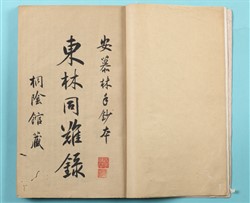 安慕林手鈔本
東林同難錄
桐陰館藏